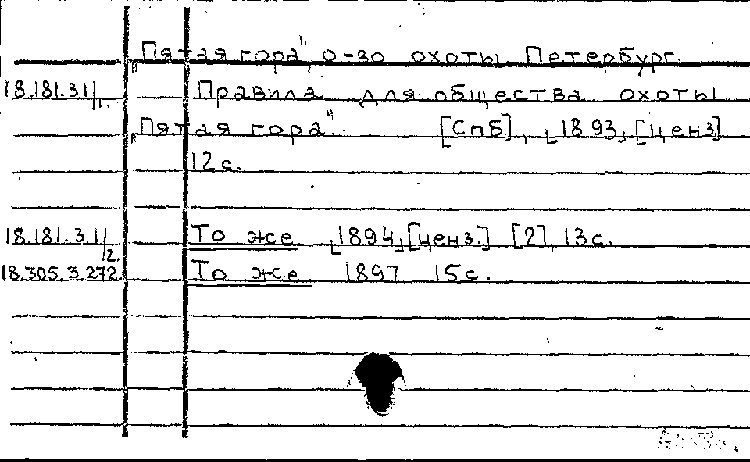 „Пятая гора", о-во охоты, Петербург.
18.181.3.1/1. Правила для общества охоты
„Пятая гора" [Спб], 1893, [ценз]
12 с.
18.181.3.1/2. То же 1894, [ценз.] [2], 13 с.
18.305.3.272. То же 1897 15 с.